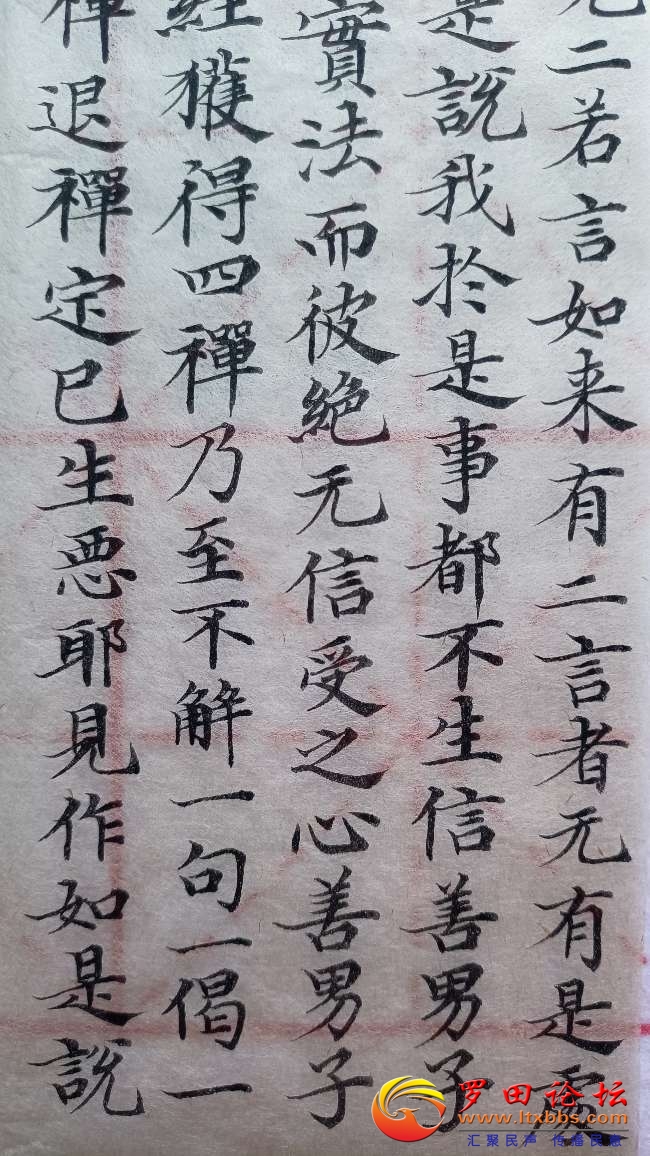 无二若言如来有二言者无有是處
是說我於是事都不生信善男子
實法而彼絕无信受之心善男子
經獲得四禪乃至不解一句一偈一
禪退禪定已生悪耶見作如是說
罗田论坛
www.ltxbbs.com
汇聚民声 传播民意